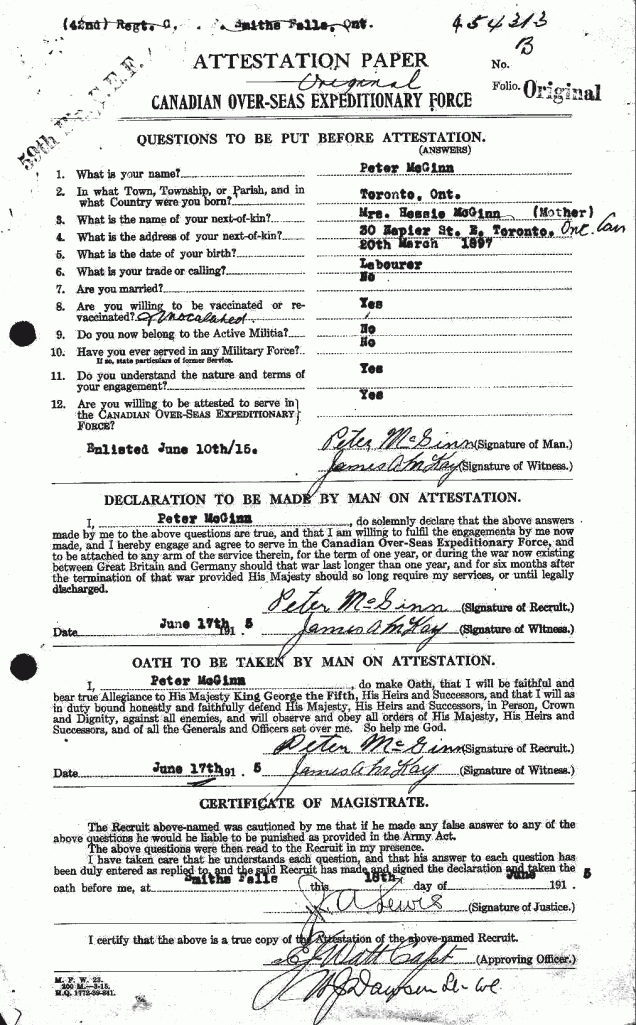 (42nd) Regt. C. Smiths Falls, Ont.
454313
B
ATTESTATION PAPER
No.
Original
Folio. Original
CANADIAN OVER-SEAS EXPEDITIONARY FORCE
59th
QUESTIONS TO BE PUT BEFORE ATTESTATION.
(ANSWERS)
1. What is your name? Peter McGinn
2. In what Town, Township, or Parish, and in
what Country were you born? Toronto, Ont.
3. What is the name of your next-of-kin? Mrs. Hessie McGinn (Mother)
4. What is the address of your next-of-kin? 30 Napier St. E. Toronto. Ont. Can
5. What is the date of your birth? 20th March 1897
6. What is your trade or calling? Labourer
7. Are you married? No
8. Are you willing to be vaccinated or re-
vaccinated? & Inoculated. Yes
9. Do you now belong to the Active Militia? No
10. Have you ever served in any Military Force? No
If so, state particulars of former Service.
11. Do you understand the nature and terms of
your engagement? Yes
12. Are you willing to be attested to serve in
the CANADIAN OVER-SEAS EXPEDITIONARY
FORCE? Yes
Enlisted June 10th/15.
Peter McGinn (Signature of Man.)
James A McKay (Signature of Witness.)
DECLARATION TO BE MADE BY MAN ON ATTESTATION.
I, Peter McGinn, do solemnly declare that the above answers
made by me to the above questions are true, and that I am willing to fulfil the engagements by me now
made, and I hereby engage and agree to serve in the Canadian Over-Seas Expeditionary Force, and
to be attached to any arm of the service therein, for the term of one year, or during the war now existing
between Great Britain and Germany should that war last longer than one year, and for six months after
the termination of that war provided His Majesty should so long require my services, or until legally
discharged.
Peter McGinn (Signature of Recruit.)
Date June 17th 191 5 James A McKay (Signature of Witness.)
OATH TO BE TAKEN BY MAN ON ATTESTATION.
I, Peter McGinn, do make Oath, that I will be faithful and
bear true Allegiance to His Majesty King George the Fifth, His Heirs and Successors, and that I will as
in duty bound honestly and faithfully defend His Majesty, His Heirs and Successors, in Person, Crown
and Dignity, against all enemies, and will observe and obey all orders of His Majesty, His Heirs and
Successors, and of all the Generals and Officers set over me. So help me God.
Peter McGinn (Signature of Recruit.)
Date June 17th 191. 5 James A McKay (Signature of Witness.)
CERTIFICATE OF MAGISTRATE.
The Recruit above-named was cautioned by me that if he made any false answer to any of the
above questions he would be liable to be punished as provided in the Army Act.
The above questions were then read to the Recruit in my presence.
I have taken care that he understands each question, and that his answer to each question has
been duly entered as replied to, and the said Recruit has made and signed the declaration and taken the
oath before me, at Smiths Falls this 18th day of June 191 . 5
A Lewis (Signature of Justice.)
I certify that the above is a true copy of the Attestation of the above-named Recruit.
Watt Capt (Approving Officer.)
M. F. W. 23.
200 M.—3-15.
H.Q. 1772-39-841.
Dawson